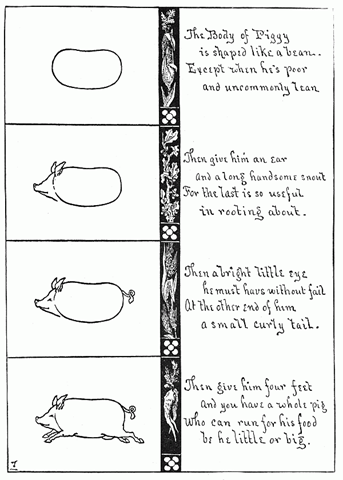 The Body of Piggy
is shaped like a bean..
Except when he's poor
and uncommonly lean
Then give him an ear
and a long handsome snout
For the last is so useful
in rooting about.
Then a bright little eye
he must have without fail
At the other end of him
a small curly tail.
Then give him four feet
and you have a whole pig
Who can run for his food
be he little or big.
7